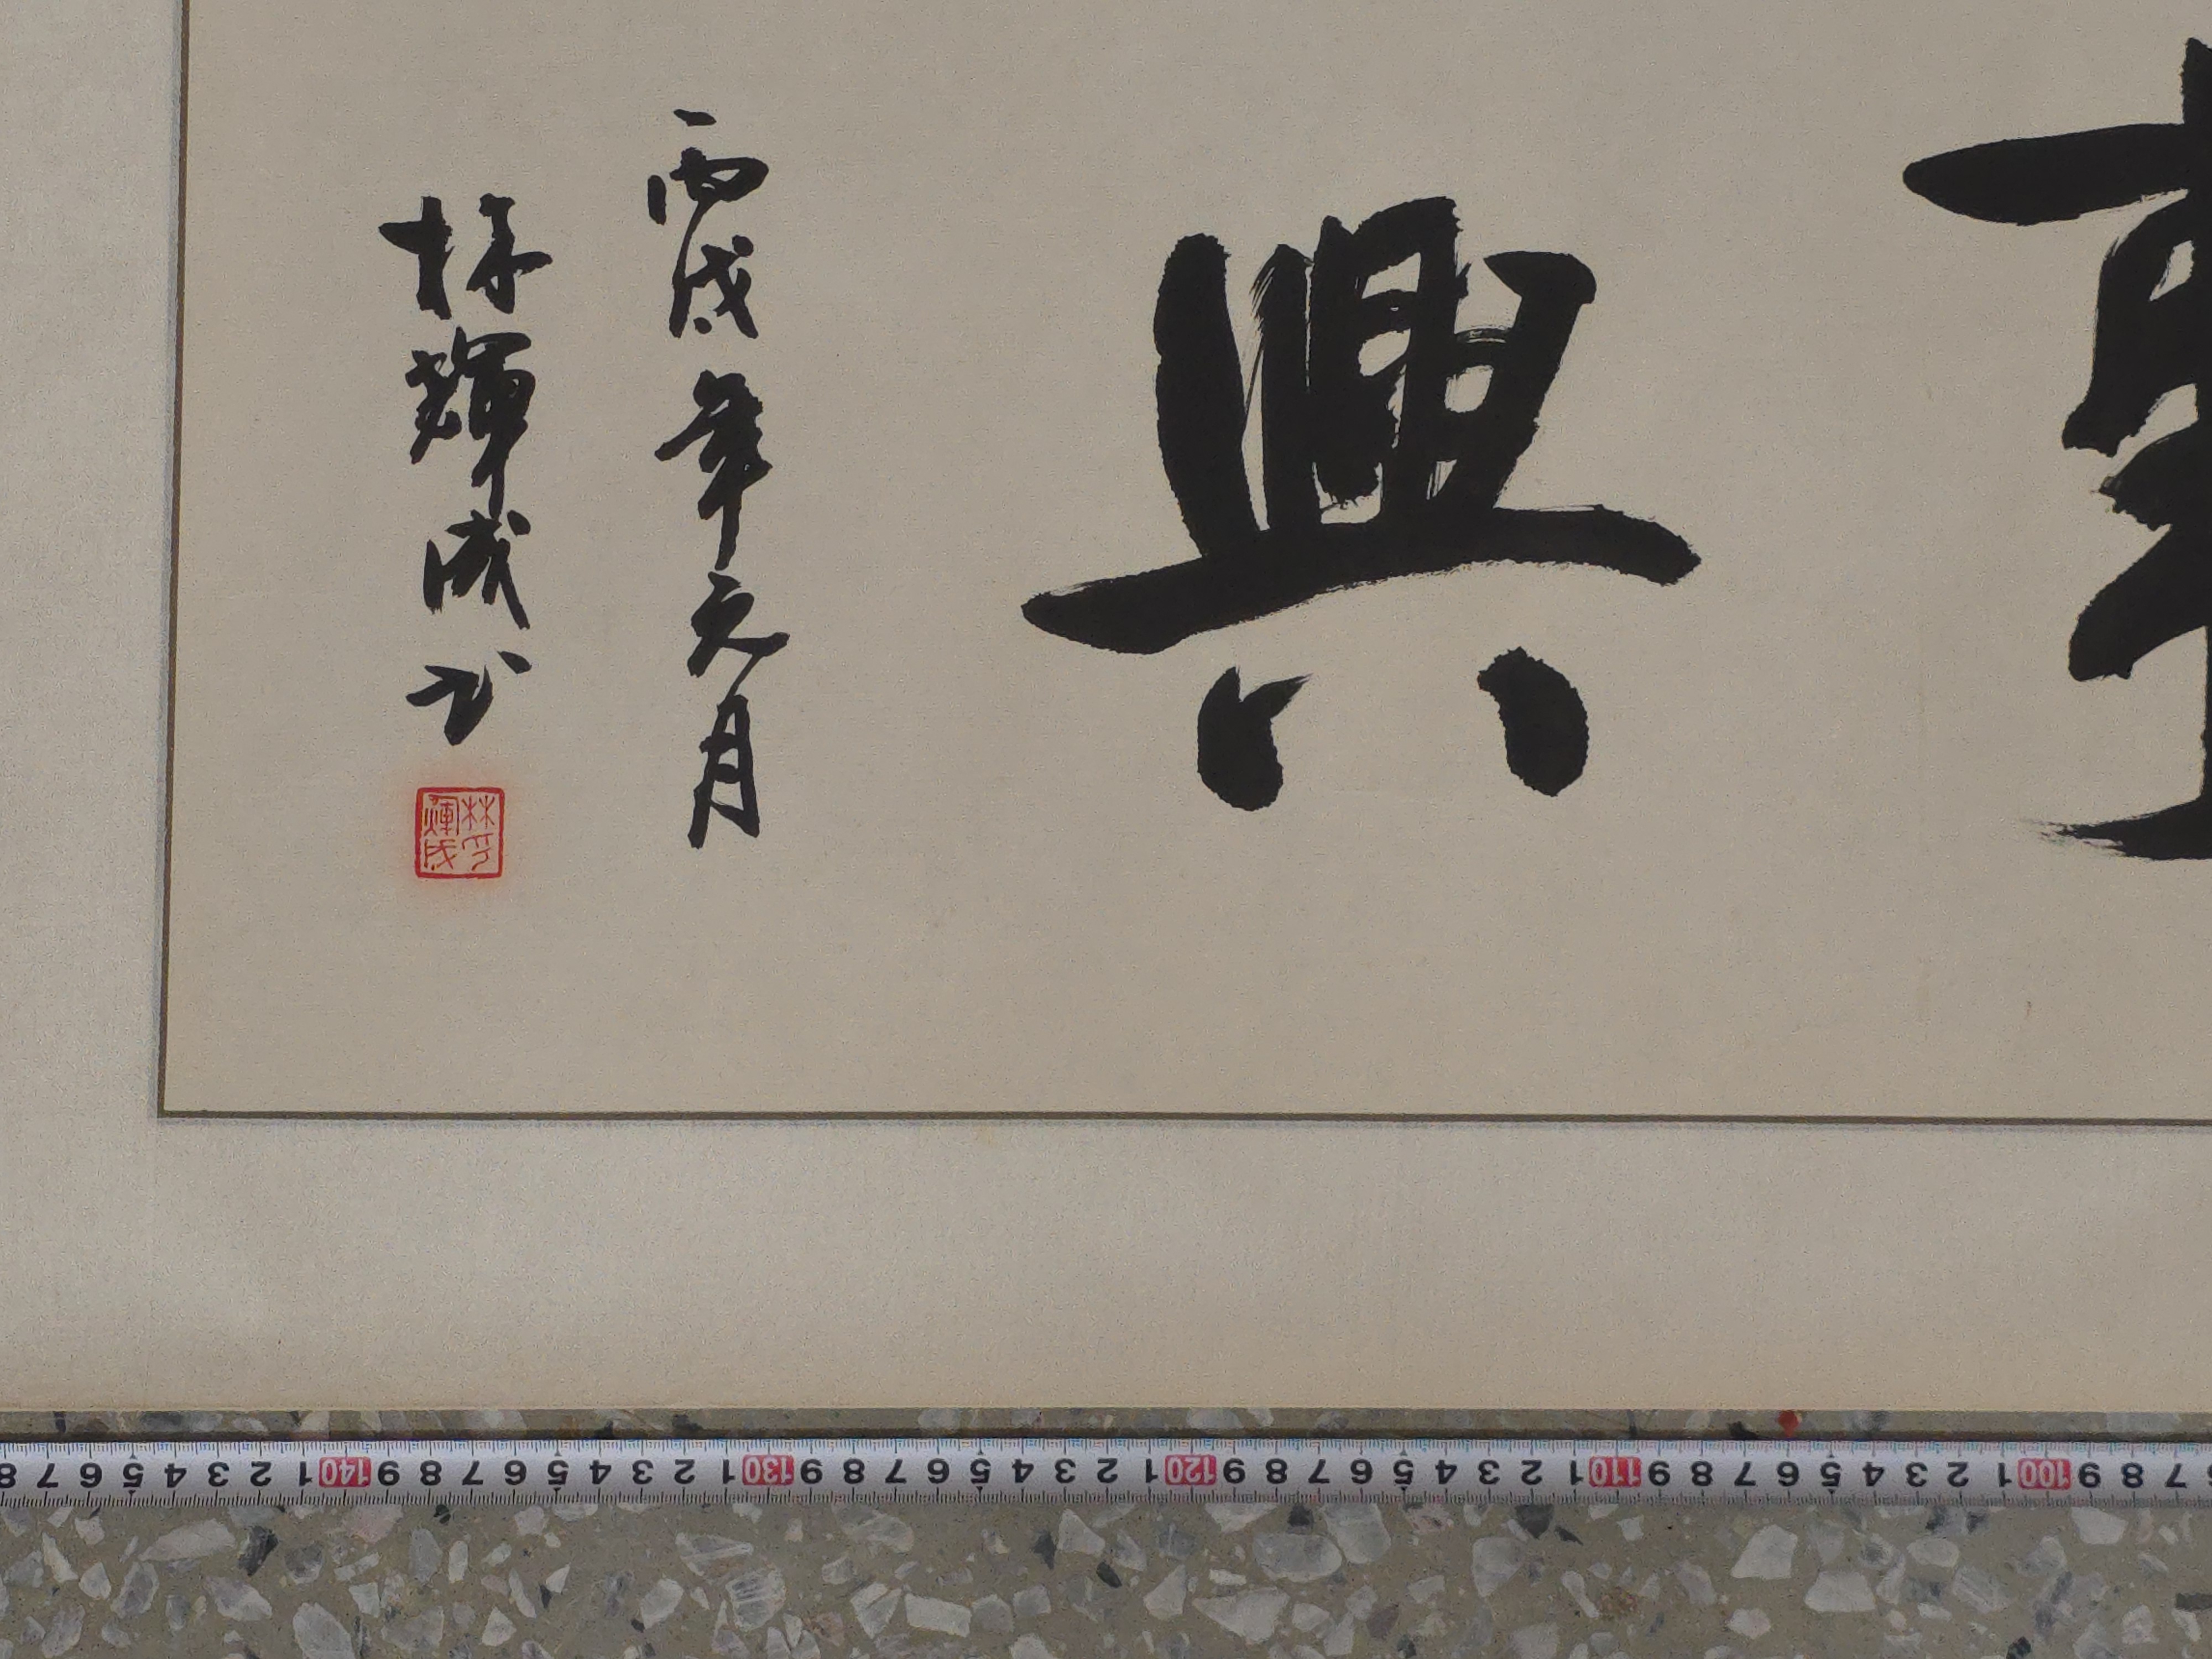 事興
丙戌年元月
林輝成书
林輝成印
8 7 6 5 4 3 2 1 140 9 8 7 6 5 4 3 2 1 130 9 8 7 6 5 4 3 2 1 120 9 8 7 6 5 4 3 2 1 110 9 8 7 6 5 4 3 2 1 100 9 8 7